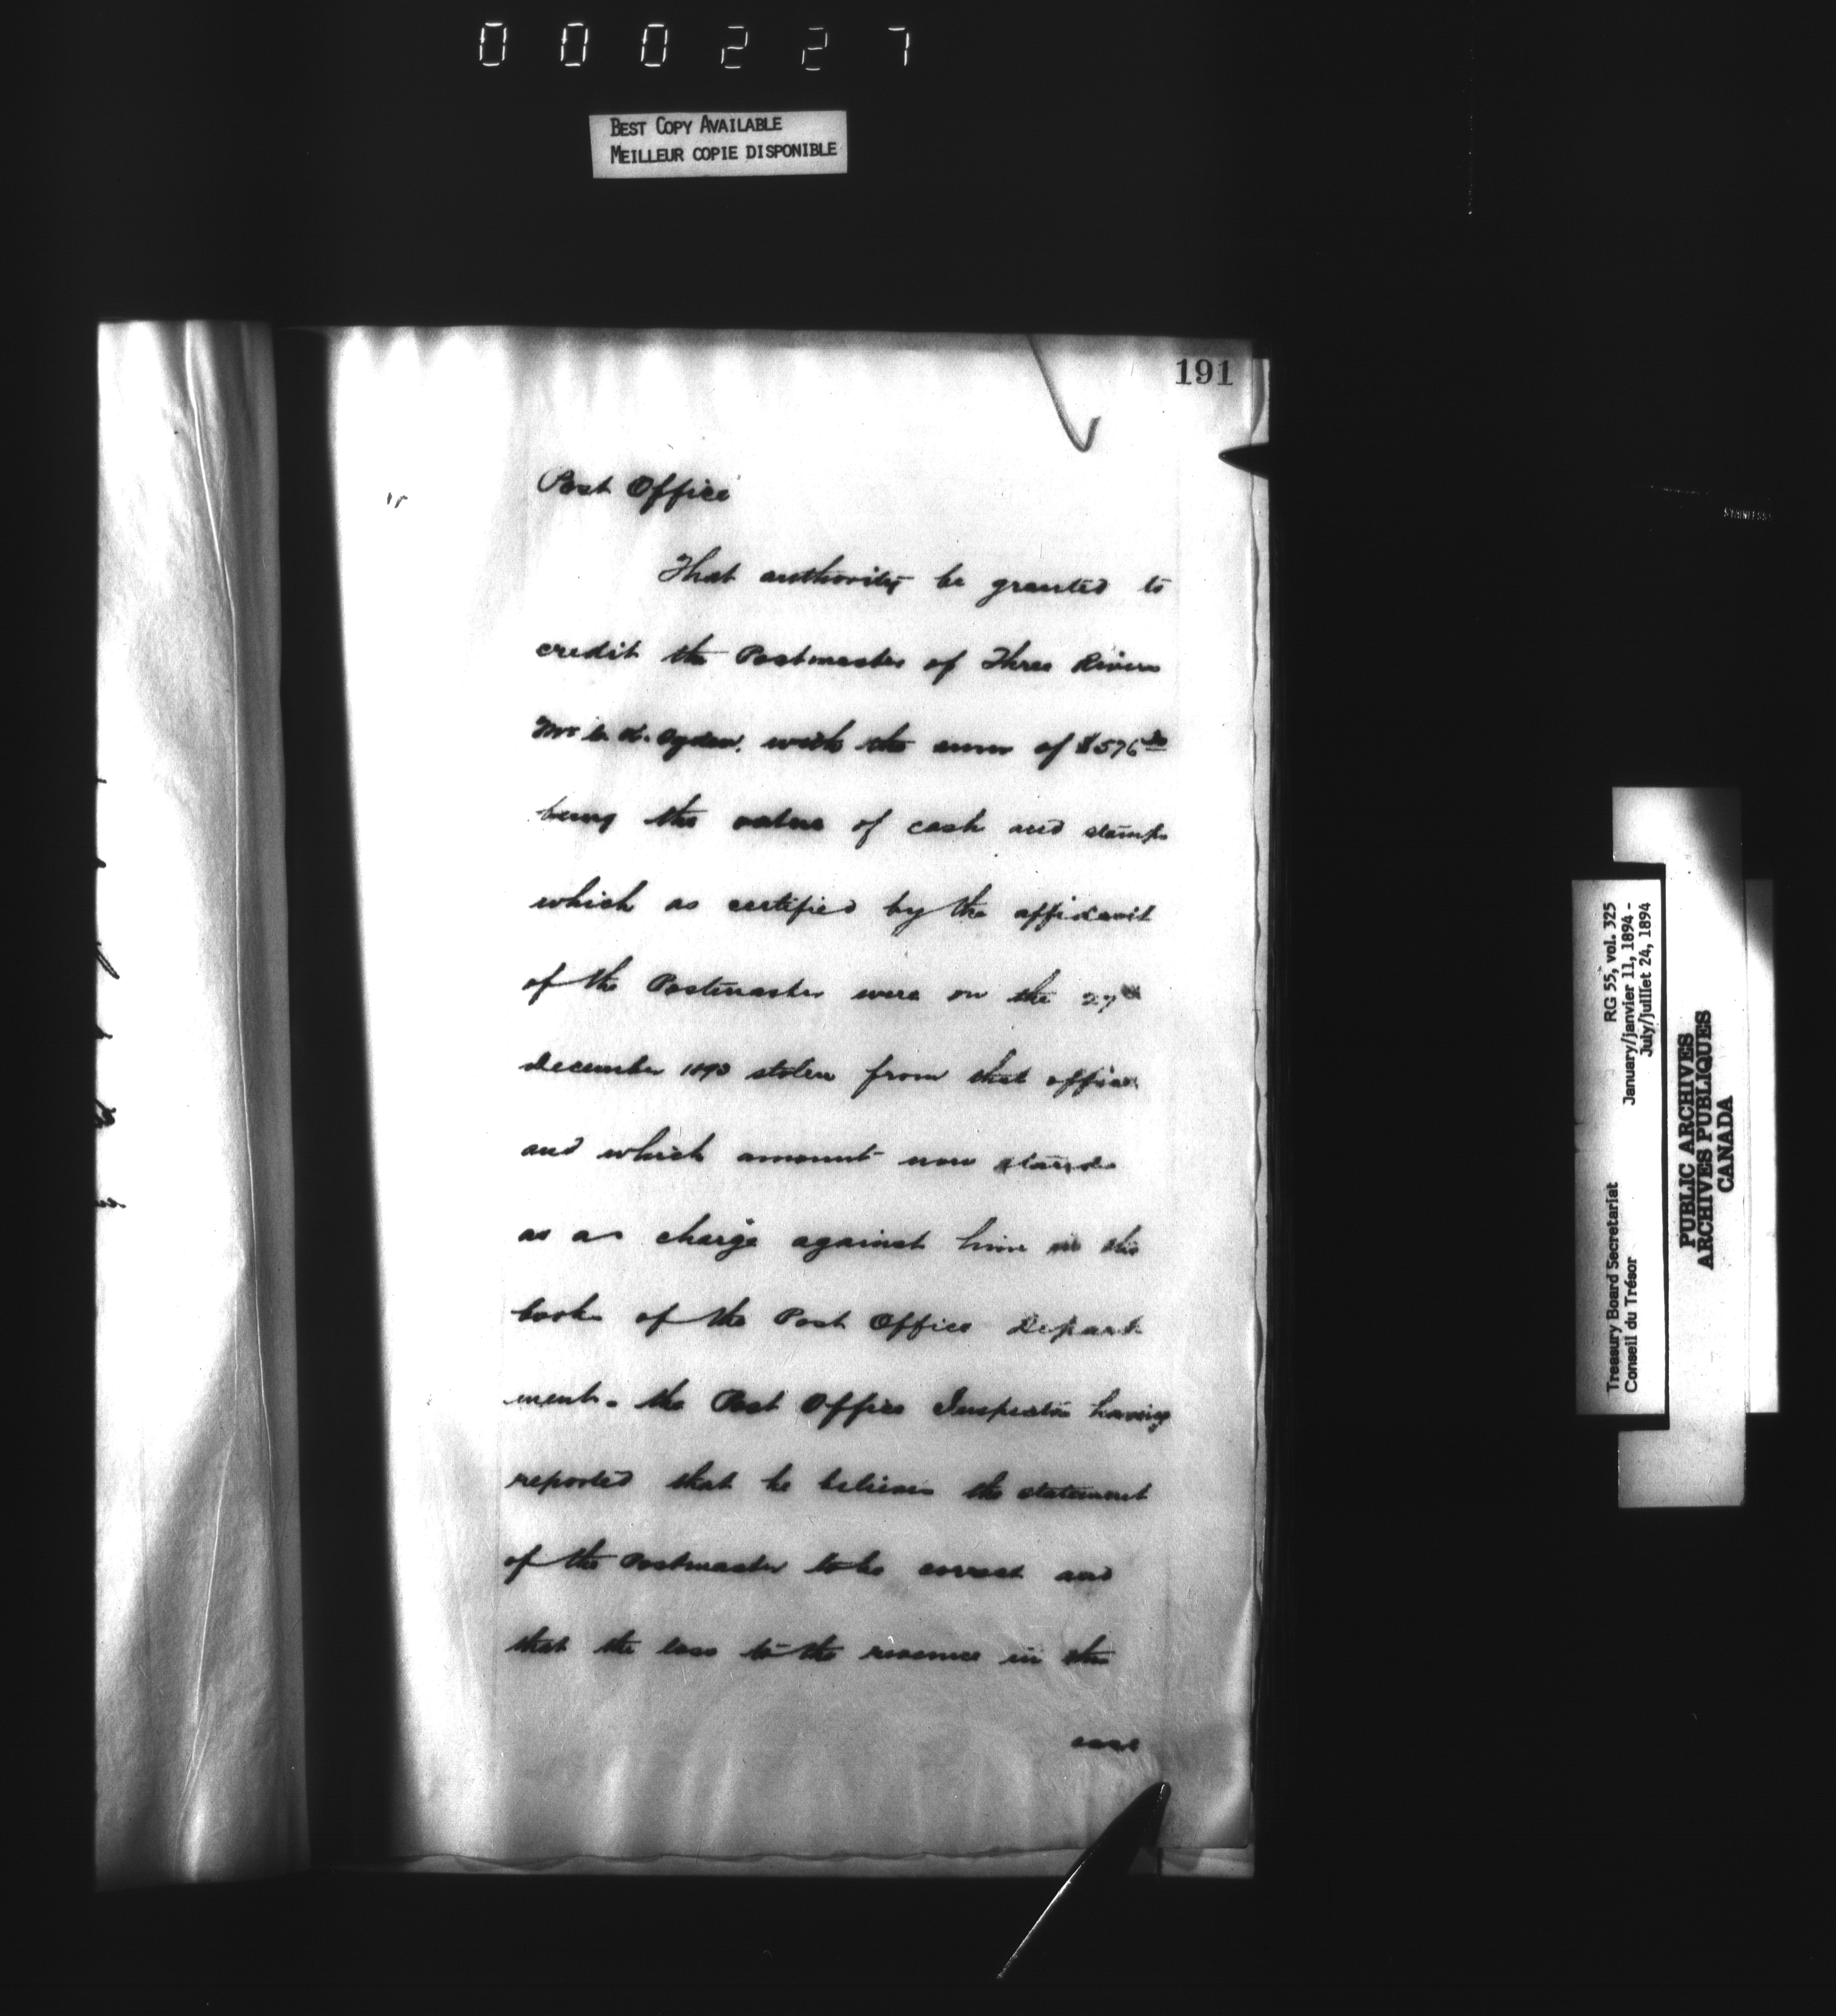 000227
BEST COPY AVAILABLE
MEILLEUR COPIE DISPONIBLE
191
Post Office
That authority be granted to
credit the Postmaster of Three Rivers
Mr C. K. Ogden, with the sum of $576
being the value of cash and stamps
which as certified by the affidavit
of the Postmaster were on the 27th
December 1893 stolen from that office
and which amount now stands
as a charge against him in the
books of the Post Office Depart
ment. the Post Office Inspector having
reported that he believes the statement
of the Postmaster to be correct and
that the loss to the revenue in the
case
Treasury Board Secretariat RG 55, vol. 325
Conseil du Trésor January/janvier 11, 1894 -
July/juillet 24, 1894
PUBLIC ARCHIVES
ARCHIVES PUBLIQUES
CANADA
STAINLESS